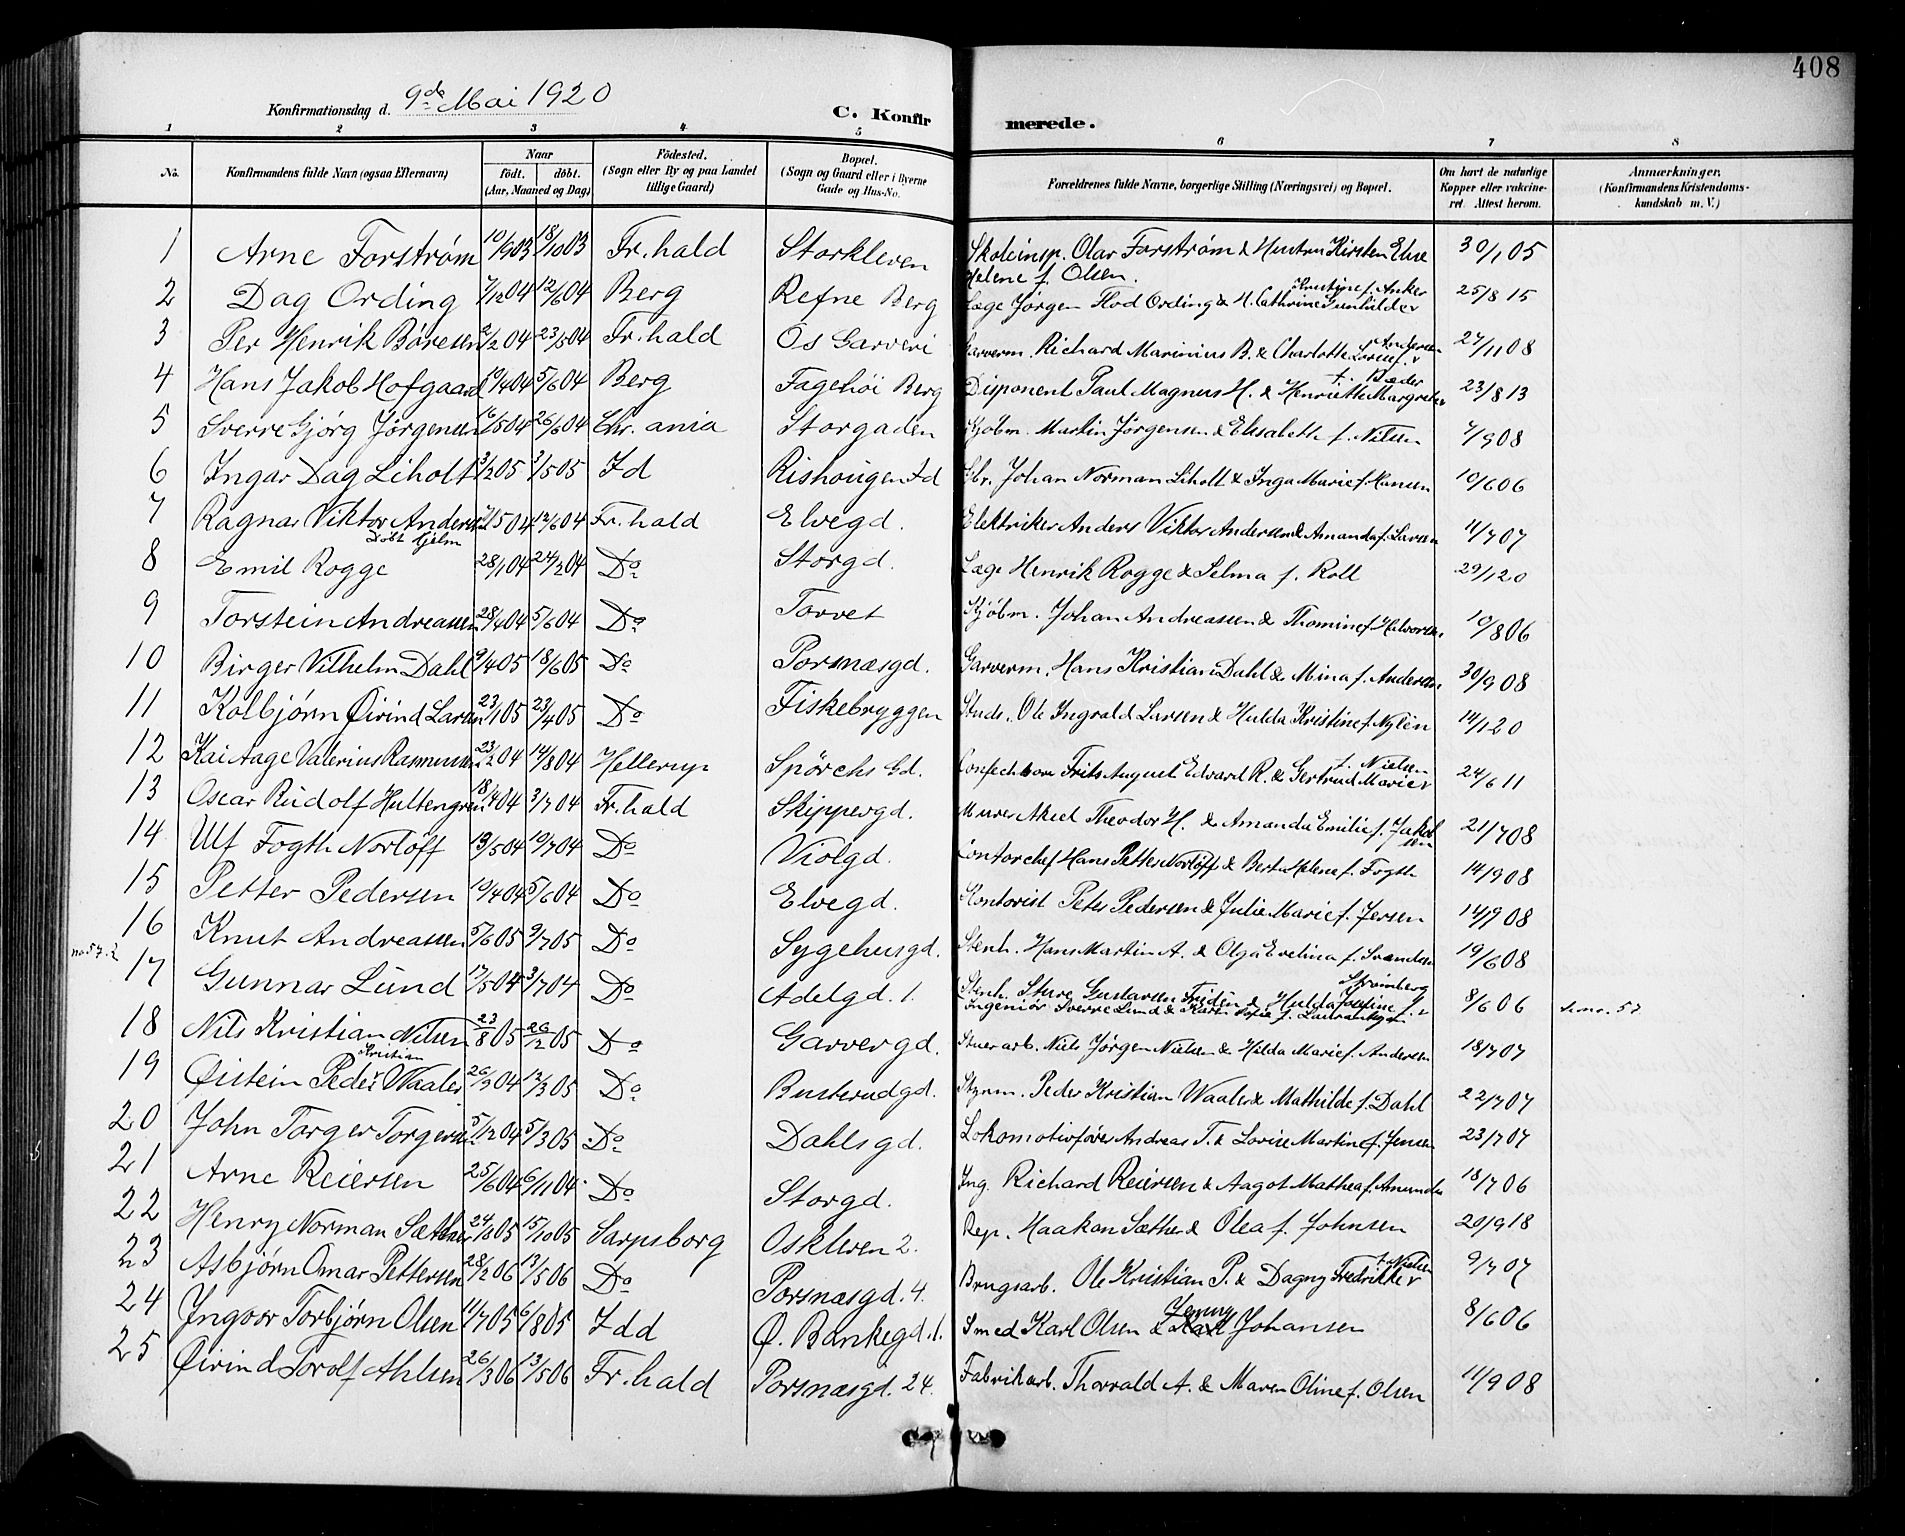 408
Konfirmationsdag d. 9de Mai 1920 C. Konfir merede.
1 2 3 4 5 6 7 8
No. Konfirmandens fulde Navn (ogsaa Efternavn) Naar födt. döbt. (Aar, Maaned og Dag) Födested. (Sogn eller By og paa Landet tillige Gaard) Bopæl. (Sogn og Gaard eller i Byerne Gade og Hus-No. Forældrenes fulde Navne, borgerlige Stilling (Næringsvei) og Bopæl. Om havt de naturlige Kopper eller vakcineret. Attest herom. Anmærkninger. (Konfirmandens Kristendomskundskab m. V.)
1 Arne Forstrøm 10/9 03 18/10 03 Fr.hald Storkleven Skoleinsp. Olav Forstrøm & Hustru Kirsten Else Helene f. Olsen. 30/1 05
2 Dag Ording 7/12 04 12/6 04 Berg Refne Berg Læge Jørgen Flod Ording & H. Cathrine Gunhilder f. Anker 25/8 15
3 Per Henrik Børesen 2/2 04 23/5 04 Fr.hald Os Garveri Garverm. Richard Marinius B. & Charlotte Lovise f. Andersen 27/11 08
4 Hans Jakob Hofgaard 19/4 04 5/6 04 Berg Fagehöi Berg Disponent Paul Magnus H. & Henriette Margrete f. Bæder 23/8 13
5 Sverre Gjørg Jørgensen 16/5 04 26/6 04 Chr.ania Storgaden Kjøbm. Martin Jørgensen & Elisabeth f. Nilsen 7/9 08
6 Ingar Dag Liholt 3/2 05 3/5 05 Id Rishougen Id Gbr. Johan Norman Liholt & Inga Marie f. Hansen 10/6 06
7 Ragnar Viktor Andersen 7/5 04 12/6 04 Fr.hald Elvegd. Elektriker Anders Viktor Andersen & Amanda f. Larsen 11/7 07
8 Emil Rogge døbt Hjelm 28/1 04 24/2 04 Do Storgd. Læge Henrik Rogge & Selma f. Roll 29/1 20
9 Torstein Andreassen 28/4 04 5/6 04 Do Torvet Kjøbm. Johan Andreassen & Thomine f. Halvorsen 10/8 06
10 Birger Vilhelm Dahl 9/4 05 18/6 05 Do Porsnæsgd. Garverm. Hans Kristian Dahl & Mina f. Andersen 30/9 08
11 Kolbjørn Øivind Larsen 23/1 05 23/4 05 Do Fiskebryggen Studs. Ole Ingvald Larsen & Hulda Kristine f. Nylén 14/1 20
12 Kai Aage Valerius Rasmussen 23/2 04 14/8 04 Hellerup Spörchs Gd. Confectione Frits August Edvard R. & Gertrud Marie f. Nielsen 24/6 11
13 Oscar Rudolf Hultengren 18/4 04 3/7 04 Fr.hald Skippergd. Murer Aksel Theodor H. & Amanda Emilie f. Jakobsen 21/7 08
14 Ulf Fogth Norløff 13/5 04 10/7 04 Do Violgd. Contorchef Hans Petter Norløff & Berth Helene f. Fogth 14/9 08
15 Petter Pedersen 10/4 04 5/6 04 Do Elvegd. Kontorist Peter Pedersen & Julie Marie f. Jensen 14/9 08
16 Knut Andreassen 5/6 05 9/7 05 Do Sygehusgd. Stenh. Hans Martin A. & Olga Evelina f. Svendsen 19/6 08
no 57.2 17 Gunnar Lund 17/5 04 3/7 04 Do Adelgd. 1. Stenh. Sture Gustavsen Fridén & Hulda Josefine f. Strömberg Ingeniør Sverre Lund & Karen Sofie f. 8/6 06 se no. 57
18 Nils Kristian Nilsen 23/8 05 26/2 05 Do Garvergd. Stuerarb. Niels Jørgen Nielsen & Hilda Marie f. Andersen 18/7 07
19 Øistein Peder Kristian Waaler 26/9 04 12/3 05 Do Busterudgd. Styrm. Peder Kristian Waaler & Mathilde f. Dahl 22/7 07
20 John Torger Torgersen 5/12 04 5/3 05 Do Dahlsgd. Lokomotivfører Andreas T. & Lovise Martine f. Jensen 23/7 07
21 Arne Reiersen 25/6 04 6/11 04 Do Storgd. Ing. Richard Reiersen & Aagot Mathea f. Amundsen 18/7 06
22 Henry Norman Sæther 24/10 05 15/10 05 Sarpsborg Oskleven 2. Rep. Haakon Sæther & Olea f. Johnsen 20/9 18
23 Asbjørn Omar Pettersen 28/2 06 13/5 06 Do Porsnæsgd. 4. Brugsarb. Ole Kristian P. & Dagny Fredrikke f. Nielsen 9/7 07
24 Ingvar Torbjørn Olsen 11/7 05 6/8 05 Idd Ø. Bankegd. 1. Smed Karl Olsen & Jenny Johansen 8/6 06
25 Øivind Torolf Ahlsen 26/3 06 13/5 06 Fr.hald Porsnæsgd. 24. Fabrikarb. Thorvald A. & Maren Oline f. Olsen 11/9 08